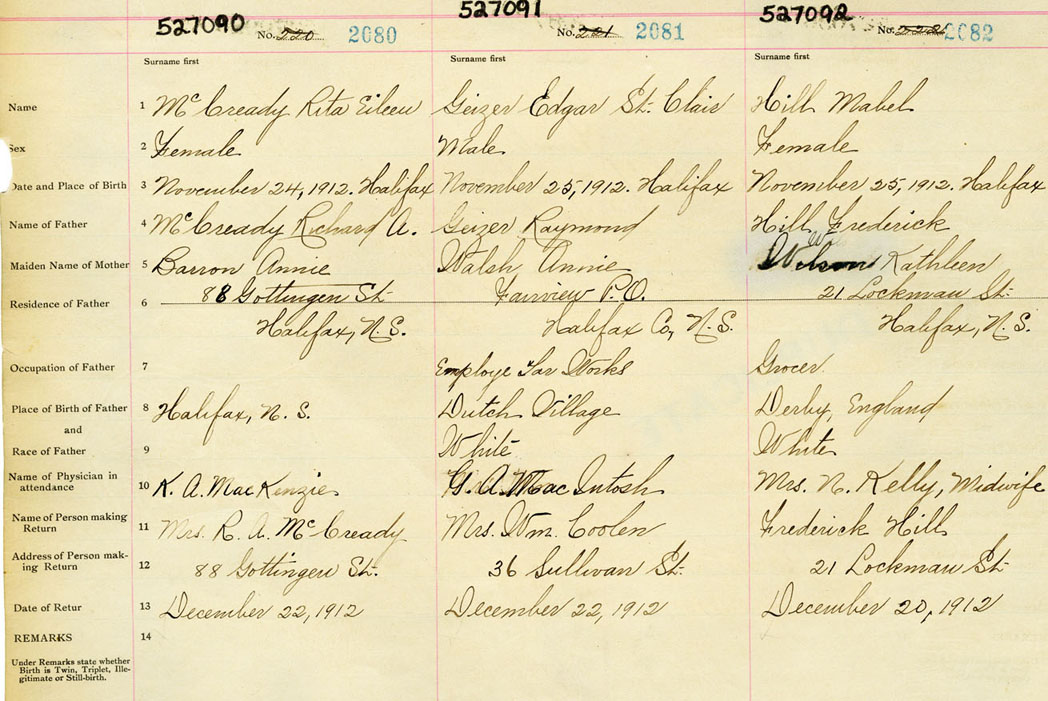 527090 527091 527092
No. 220 2080 No. 221 2081 No. 222 2082
Surname first Surname first Surname first
Name 1 McCready Rita Eileen Geizer Edgar St. Clair Hill Mabel
Sex 2 Female Male Female
Date and Place of Birth 3 November 24, 1912. Halifax November 25, 1912. Halifax November 25, 1912. Halifax
Name of Father 4 McCready Richard A. Geizer Raymond Hill Frederick
Maiden Name of Mother 5 Barron Annie Walsh Annie Wilson Kathleen
Residence of Father 6 88 Gottingen St. Fairview P.O. 21 Lockman St.
Halifax, N.S. Halifax Co, N.S. Halifax, N.S.
Occupation of Father 7 Employe Tar Works Grocer
Place of Birth of Father 8 Halifax, N.S. Dutch Village Derby, England
and
Race of Father 9 White White
Name of Physician in
attendance 10 K. A. MacKenzie G. A. MacIntosh Mrs. N. Kelly, Midwife
Name of Person making
Return 11 Mrs. R. A. McCready Mrs. Wm. Coolen Frederick Hill
Address of Person mak-
ing Return 12 88 Gottingen St. 36 Sullivan St. 21 Lockman St.
Date of Retur 13 December 22, 1912 December 22, 1912 December 20, 1912
REMARKS 14
Under Remarks state whether
Birth is Twin, Triplet, Ille-
gitimate or Still-birth.